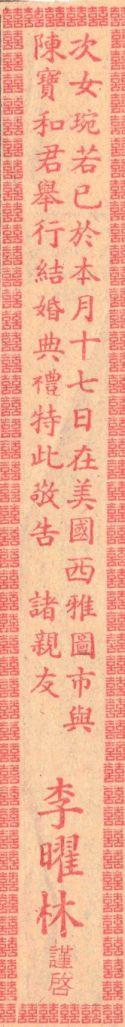 次女琬若已於本月十七日在美國西雅圖市與
陳寶和君舉行結婚典禮特此敬告　諸親友
李曜林
謹啓